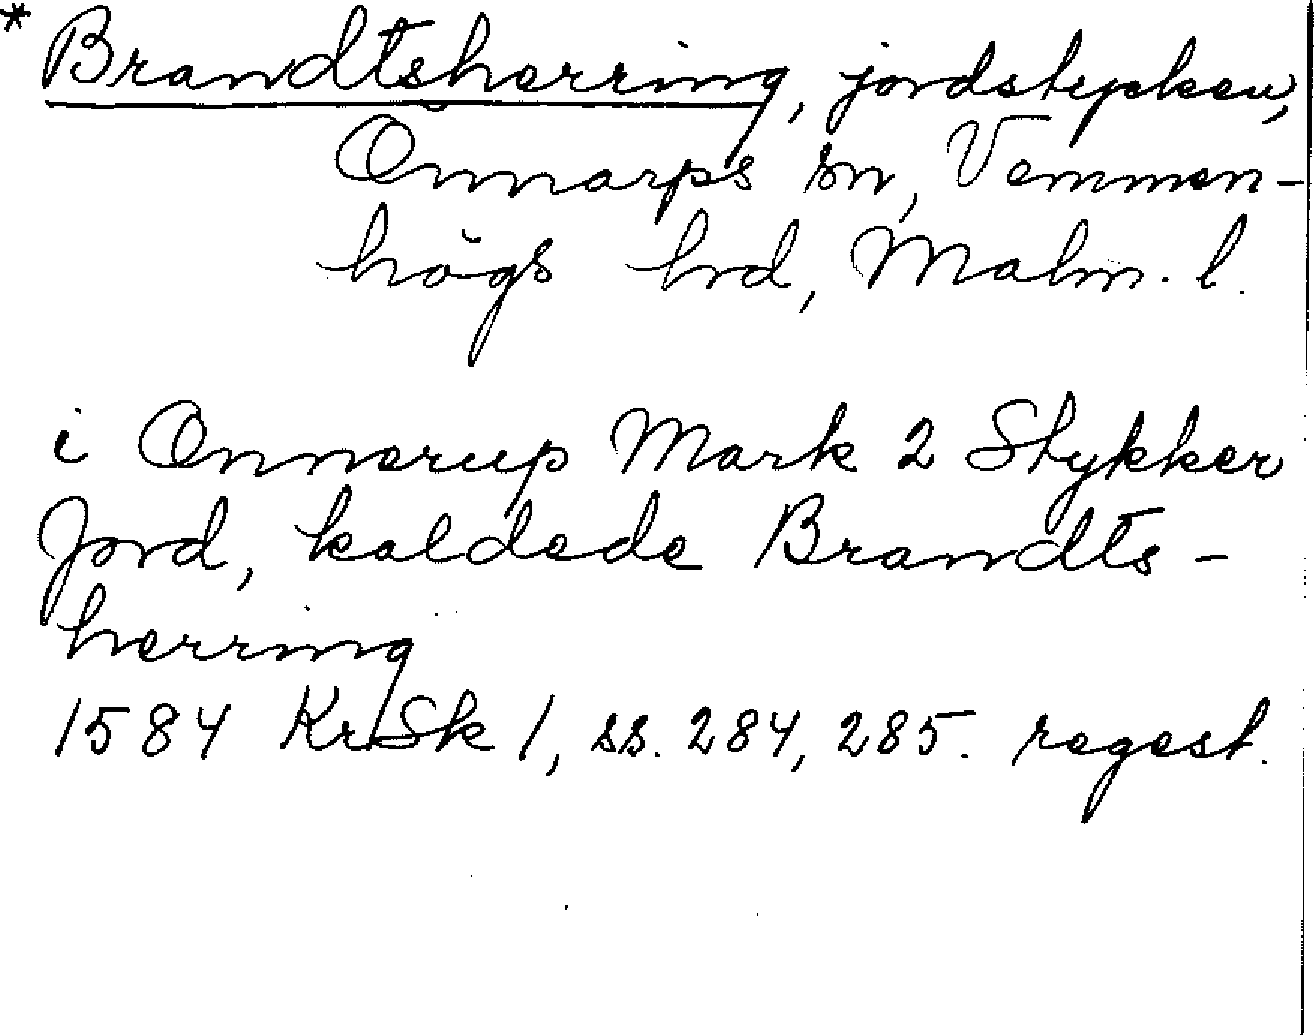 * Brandtsherring, jordstycken,
Önnarps sn, Vemmen-
högs hrd, Malm. l.
i Onnerup Mark 2 Stykker
Jord, kaldede Brandts-
herring
1584 KrSk 1, ss. 284, 285. regest.